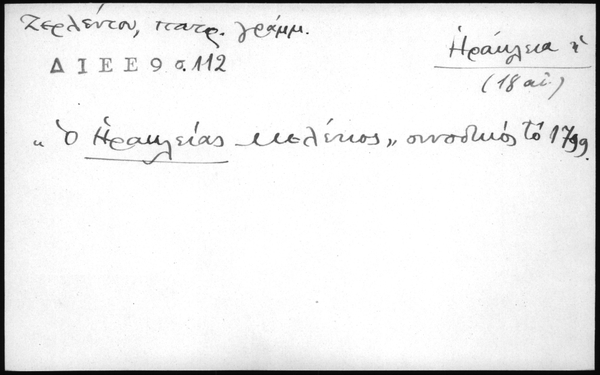 Ζερλέντου, πατρ. γράμμ.
ΔΙΕΕ 9 σ. 112
Ἡράκλεια ἡ
(18 αἰ.)
„ Ὁ Ἡρακλείας Μελέτιος „ συνοδικός τό 1799.